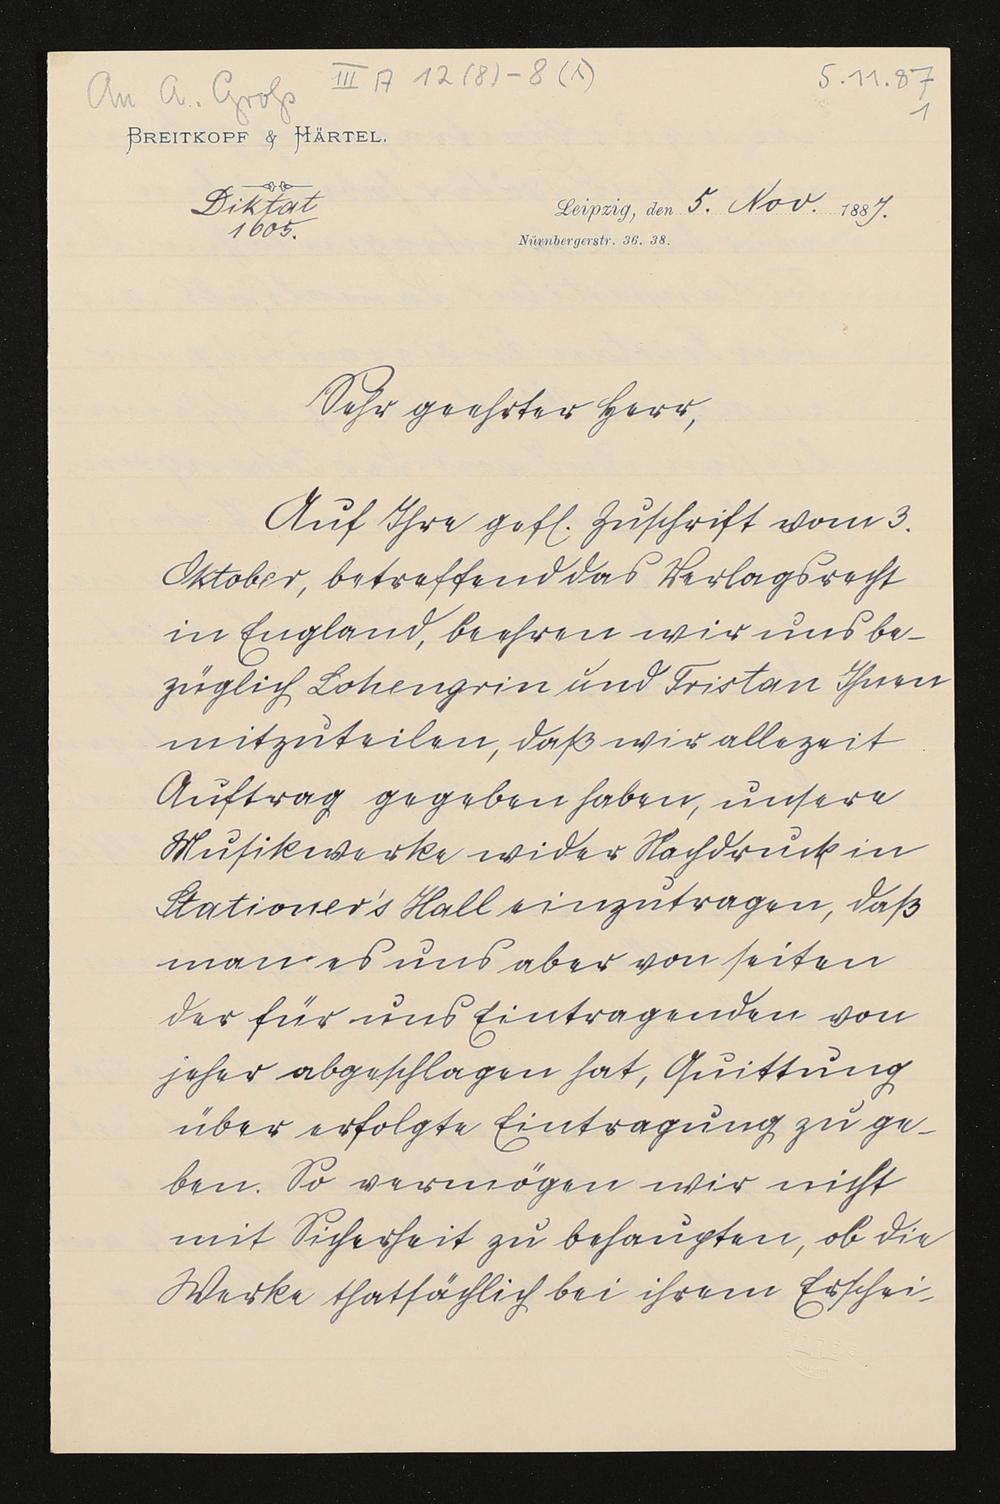 An A. Groß III A 12 (8) - 8 (1) 5.11.87
1
BREITKOPF & HÄRTEL.
Diktat
1605.
Leipzig, den 5. Nov. 1887.
Nürnbergerstr. 36. 38.
Sehr geehrter Herr,
Auf Ihre gefl. Zuschrift vom 3.
Oktober, betreffend das Verlagsrecht
in England, beehren wir uns be-
züglich Lohengrin und Tristan Ihnen
mitzuteilen, daß wir allezeit
Auftrag gegeben haben, unsere
Musikwerke wider Nachdruck in
Stationer's Hall einzutragen, daß
man es uns aber von seiten
der für uns Eintragenden von
jeher abgeschlagen hat, Quittung
über erfolgte Eintragung zu ge-
ben. So vermögen wir nicht
mit Sicherheit zu behaupten, ob die
Werke thatsächlich bei ihrem Erschei-